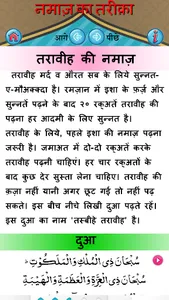 नमाज़ का तरीक़ा
आगे पीछे
तरावीह की नमाज़
तरावीह मर्द व औरत सब के लिये सुन्नत-
ए-मौअक्कदा है। रमज़ान में इशा के फ़र्ज़ और
सुन्नतें पढ़ने के बाद २० रकअतें तरावीह की
पढ़ना हर आदमी के लिए सुन्नत है।
तरावीह के लिये, पहले इशा की नमाज़ पढ़ना
ज़रूरी है। जमाअत में दो-दो रकअतें करके
तरावीह पढ़नी चाहिएं। हर चार रकअतों के
बाद कुछ देर सुस्ता लेना चाहिए। तरावीह की
क़ज़ा नहीं यानी अगर छूट गई तो नहीं पढ़
सकते। इस बीच नीचे लिखी दुआ पढ़ते रहें।
इस दुआ का नाम 'तस्बीहे तरावीह' है।
दुआ
سُبْحَانَ ذِي الْمُلْكِ وَالْمَلَكُوْتِ
سُبْحَانَ ذِي الْعِزَّةِ وَالْعَظَمَةِ وَالْهَيْبَةِ